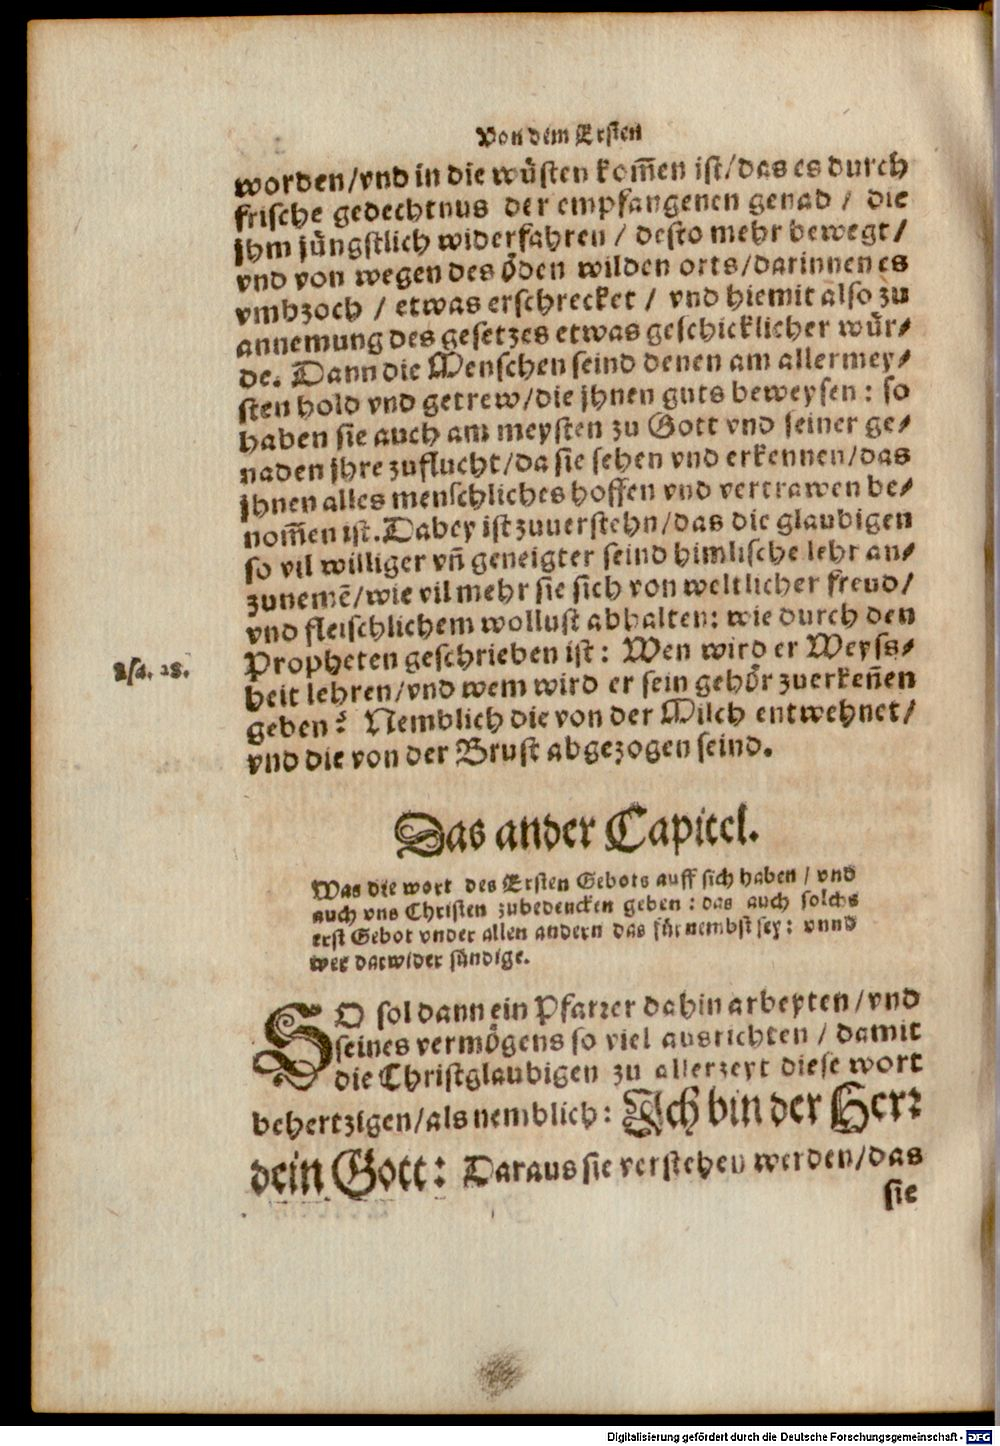 Von dem Ersten
worden/vnd in die wüsten kom̃en ist/das es durch
frische gedechtnus der empfangenen genad / die
jhm jüngstlich widerfahren / desto mehr bewegt/
vnd von wegen des öden wilden orts/darinnen es
vmbzoch / etwas erschrecket / vnd hiemit also zu
annemung des gesetzes etwas geschicklicher wür⸗
de. Dann die Menschen seind denen am allermey⸗
sten hold vnd getrew/die jhnen guts beweysen: so
haben sie auch am meysten zu Gott vnd seiner ge⸗
naden jhre zuflucht/da sie sehen vnd erkennen/das
jhnen alles menschliches hoffen vnd vertrawen be⸗
nom̃en ist. Dabey ist zuuerstehn/das die glaubigen
so vil williger vñ geneigter seind himlische lehr an⸗
zunemẽ/wie vil mehr sie sich von weltlicher freud/
vnd fleischlichem wollust abhalten: wie durch den
Propheten geschrieben ist: Wen wird er Weyss⸗
Isa. 28.
heit lehren/vnd wem wird er sein gehör zuerkeñen
geben? Nemblich die von der Milch entwehnet/
vnd die von der Brust abgezogen seind.
Das ander Capitel.
Was die wort des Ersten Gebots auff sich haben / vnd
auch vns Christen zubedencken geben: das auch solchs
erst Gebot vnder allen andern das fürnembst sey: vnnd
wer darwider sündige.
SO sol dann ein Pfarrer dahin arbeyten/vnd
seines vermögens so viel ausrichten / damit
die Christglaubigen zu allerzeyt diese wort
behertzigen/als nemblich: Ich bin der Herr
dein Gott: Daraus sie verstehen werden/das
sie
Digitalisierung gefördert durch die Deutsche Forschungsgemeinschaft - DFG